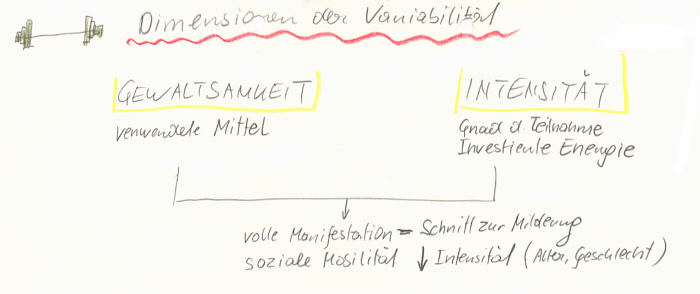 Dimensionen der Variabilität
GEWALTSAMKEIT
verwendete Mittel
INTENSITÄT
Grad d. Teilnahme
Investierte Energie
volle Manifestation = Schritt zur Milderung
soziale Mobilität ↓ Intensität (Alter, Geschlecht)